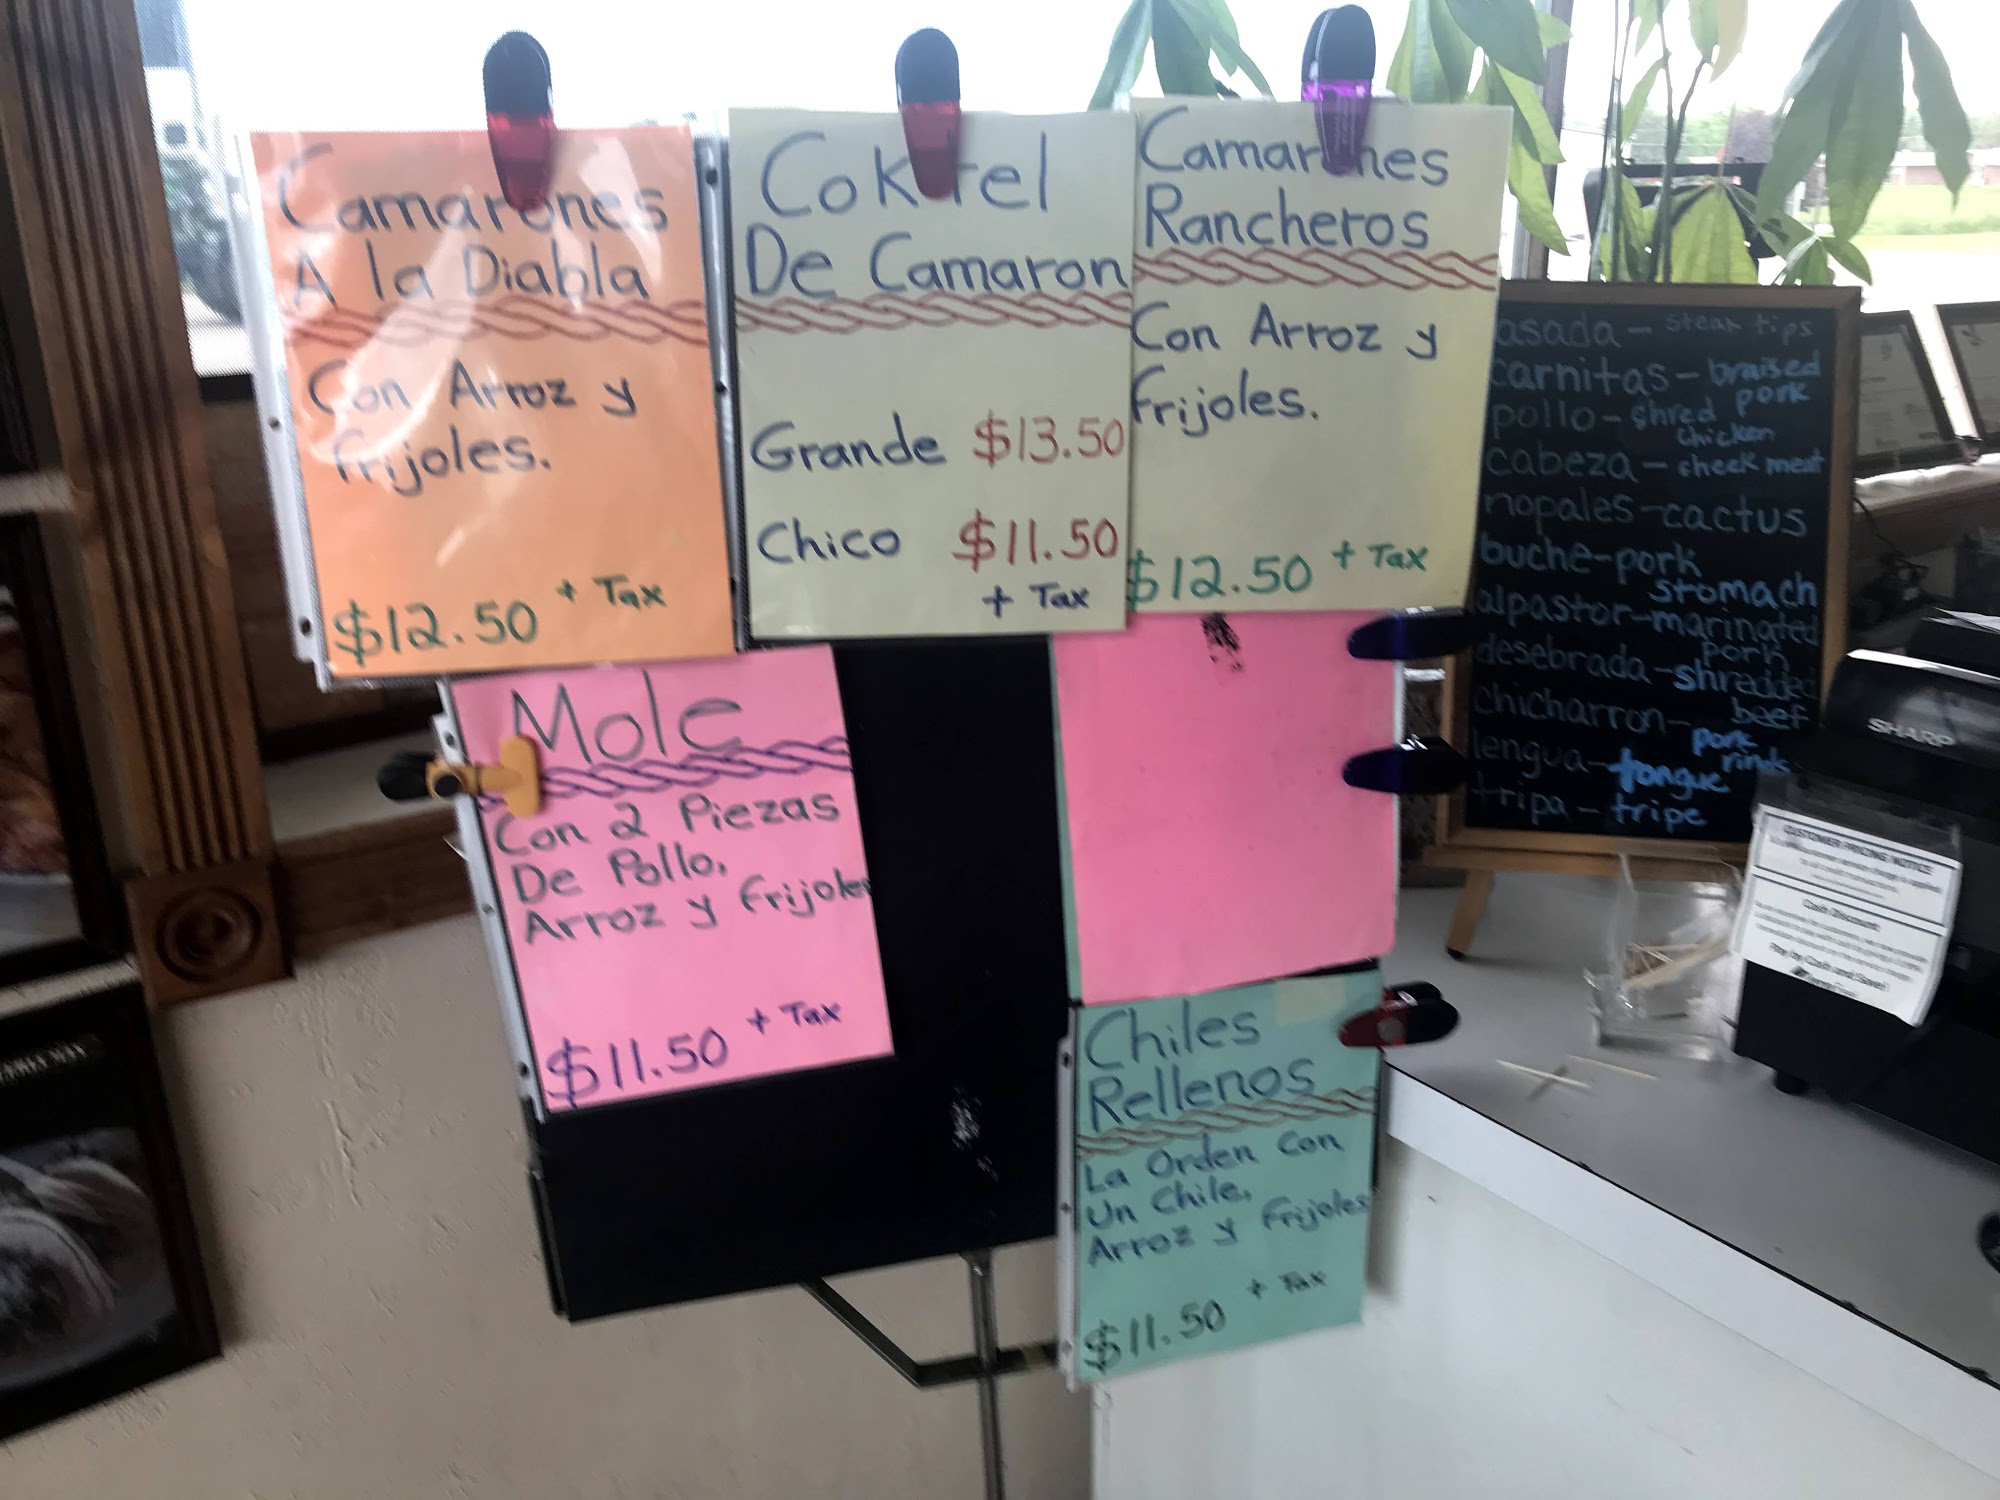 Camarones
A la Diabla
Con Arroz y
frijoles.
$12.50 + Tax
Coktel
De Camaron
Grande $13.50
Chico $11.50
+ Tax
Camarones
Rancheros
Con Arroz y
frijoles.
$12.50 + Tax
Mole
Con 2 Piezas
De Pollo,
Arroz y frijoles
$11.50 + Tax
Chiles
Rellenos
La Orden Con
Un Chile,
Arroz y frijoles
$11.50 + Tax
asada - steak tips
carnitas - braised
pork
pollo - shred
chicken
cabeza - cheek meat
nopales - cactus
buche - pork
stomach
alpastor - marinated
pork
desebrada - shredded
beef
chicharron - pork
rinds
lengua - tongue
tripa - tripe
SHARP
CUSTOMER PRICING NOTICE
Cash Discount